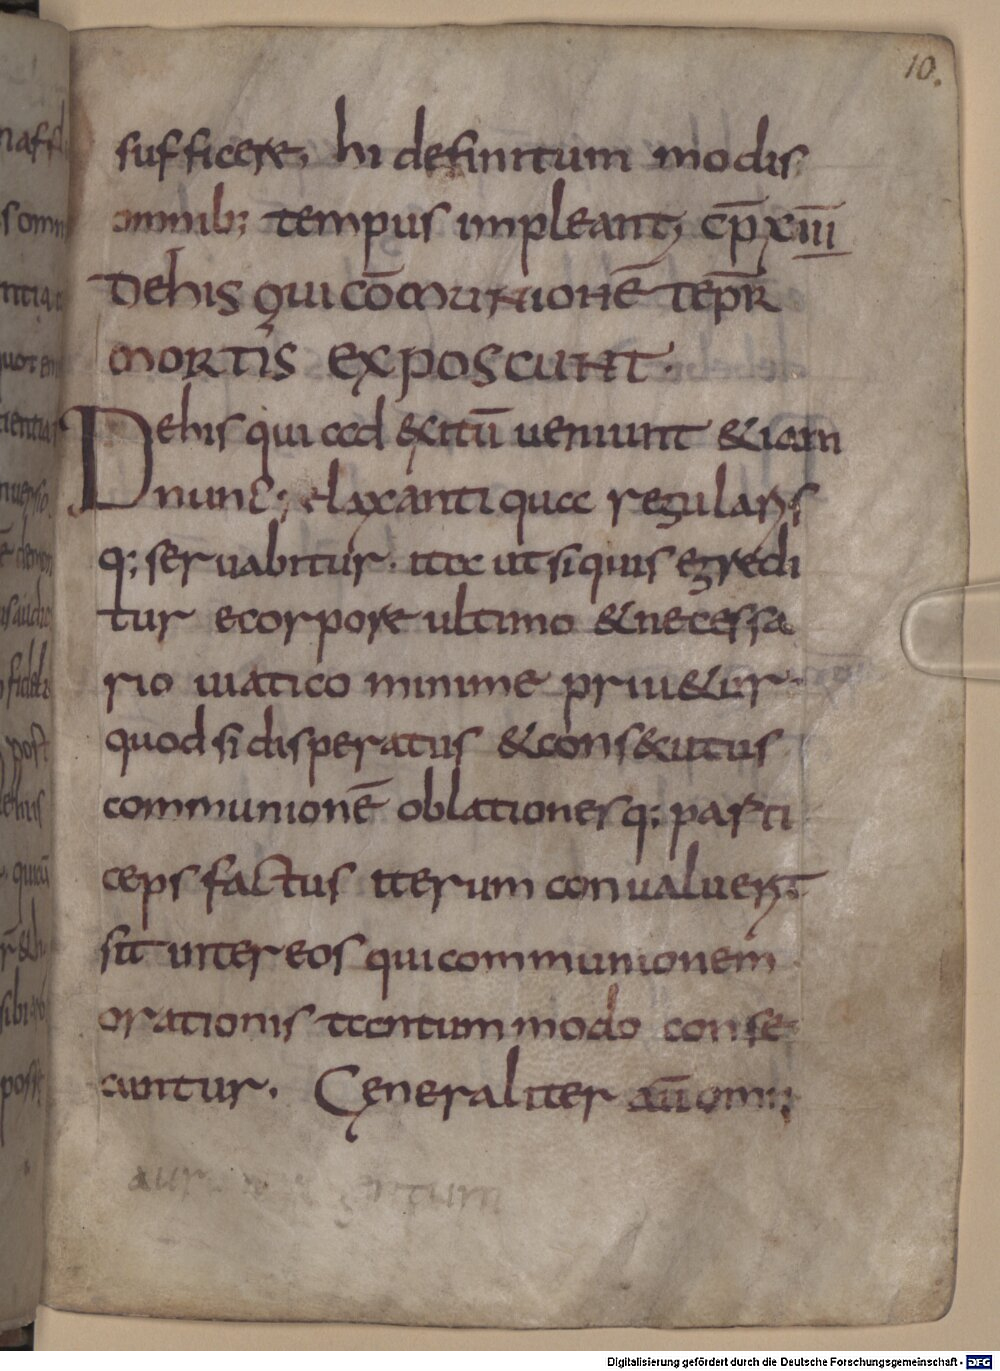 10.
sufficere, hi definitum modis
omnib; tempus impleant, cp̄ xiiii
Dehis qui cōmunionē tēpr̄
mortis exposcunt.
Dehis qui ad &itū ueniunt &iam
nunc; elax antiqua regularis
q; seruabitur. ita ut siquis egredi
tur ecorpore ultimo &necessa
rio uiatico minime priu&ur.
quod si disperatus &cons&utus
communionē oblationesq; parti
ceps factus iterum conualuerit
sit inter eos qui communionem
orationis tantummodo conse
cuntur. Generaliter aūt omni
Digitalisierung gefördert durch die Deutsche Forschungsgemeinschaft - DFG